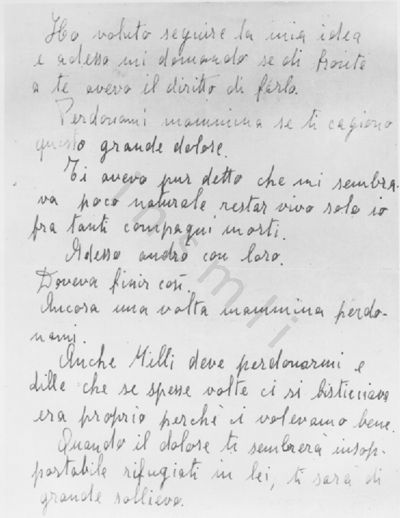 Ho voluto seguire la mia idea
e adesso mi domando se di fronte
a te avevo il diritto di farlo.
Perdonami mammina se ti cagiono
questo grande dolore.
Ti avevo pur detto che mi sembra-
va poco naturale restar vivo solo io
fra tanti compagni morti.
Adesso andrò con loro.
Doveva finir così.
Ancora una volta mammina perdo-
nami.
Anche Milli deve perdonarmi e
dille che se spesse volte ci si bisticciava
era proprio perchè ci volevamo bene.
Quando il dolore ti sembrerà insop-
portabile rifugiati in lei, ti sarà di
grande sollievo.
insmli